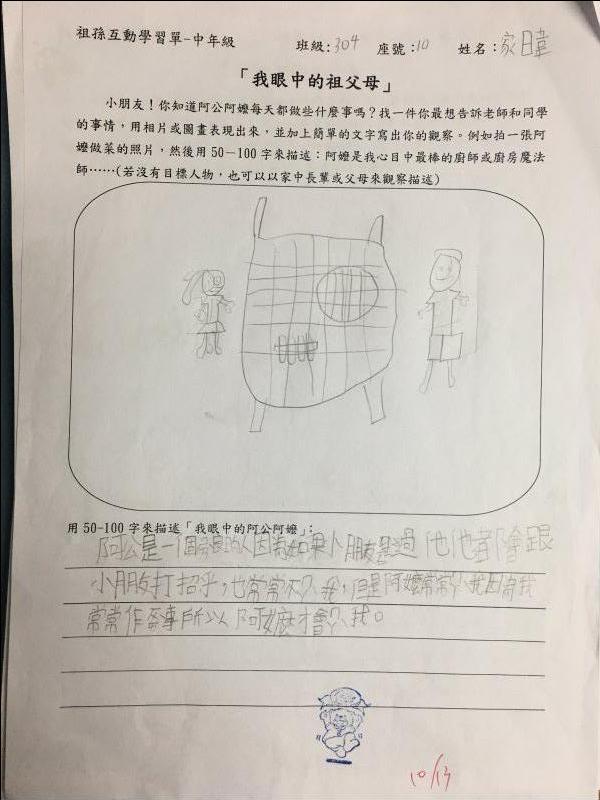 祖孫互動學習單-中年級 班級:304 座號:10 姓名:家暐
「我眼中的祖父母」
小朋友！你知道阿公阿嬤每天都做些什麼事嗎？找一件你最想告訴老師和同學
的事情，用相片或圖畫表現出來，並加上簡單的文字寫出你的觀察。例如拍一張阿
嬤做菜的照片，然後用 50－100 字來描述：阿嬤是我心目中最棒的廚師或廚房魔法
師……(若沒有目標人物，也可以以家中長輩或父母來觀察描述)
用 50-100 字來描述「我眼中的阿公阿嬤」：
阿公是一個的人因為如果小朋友過他他都會跟
小朋友打招乎，也常常不我，但是阿嬤常常我因為我
常常作事所以阿嬤才會我。
10/13